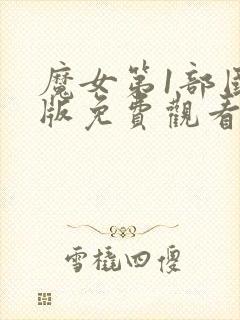 魔女第1部
版免費觀看
雪橇四傻